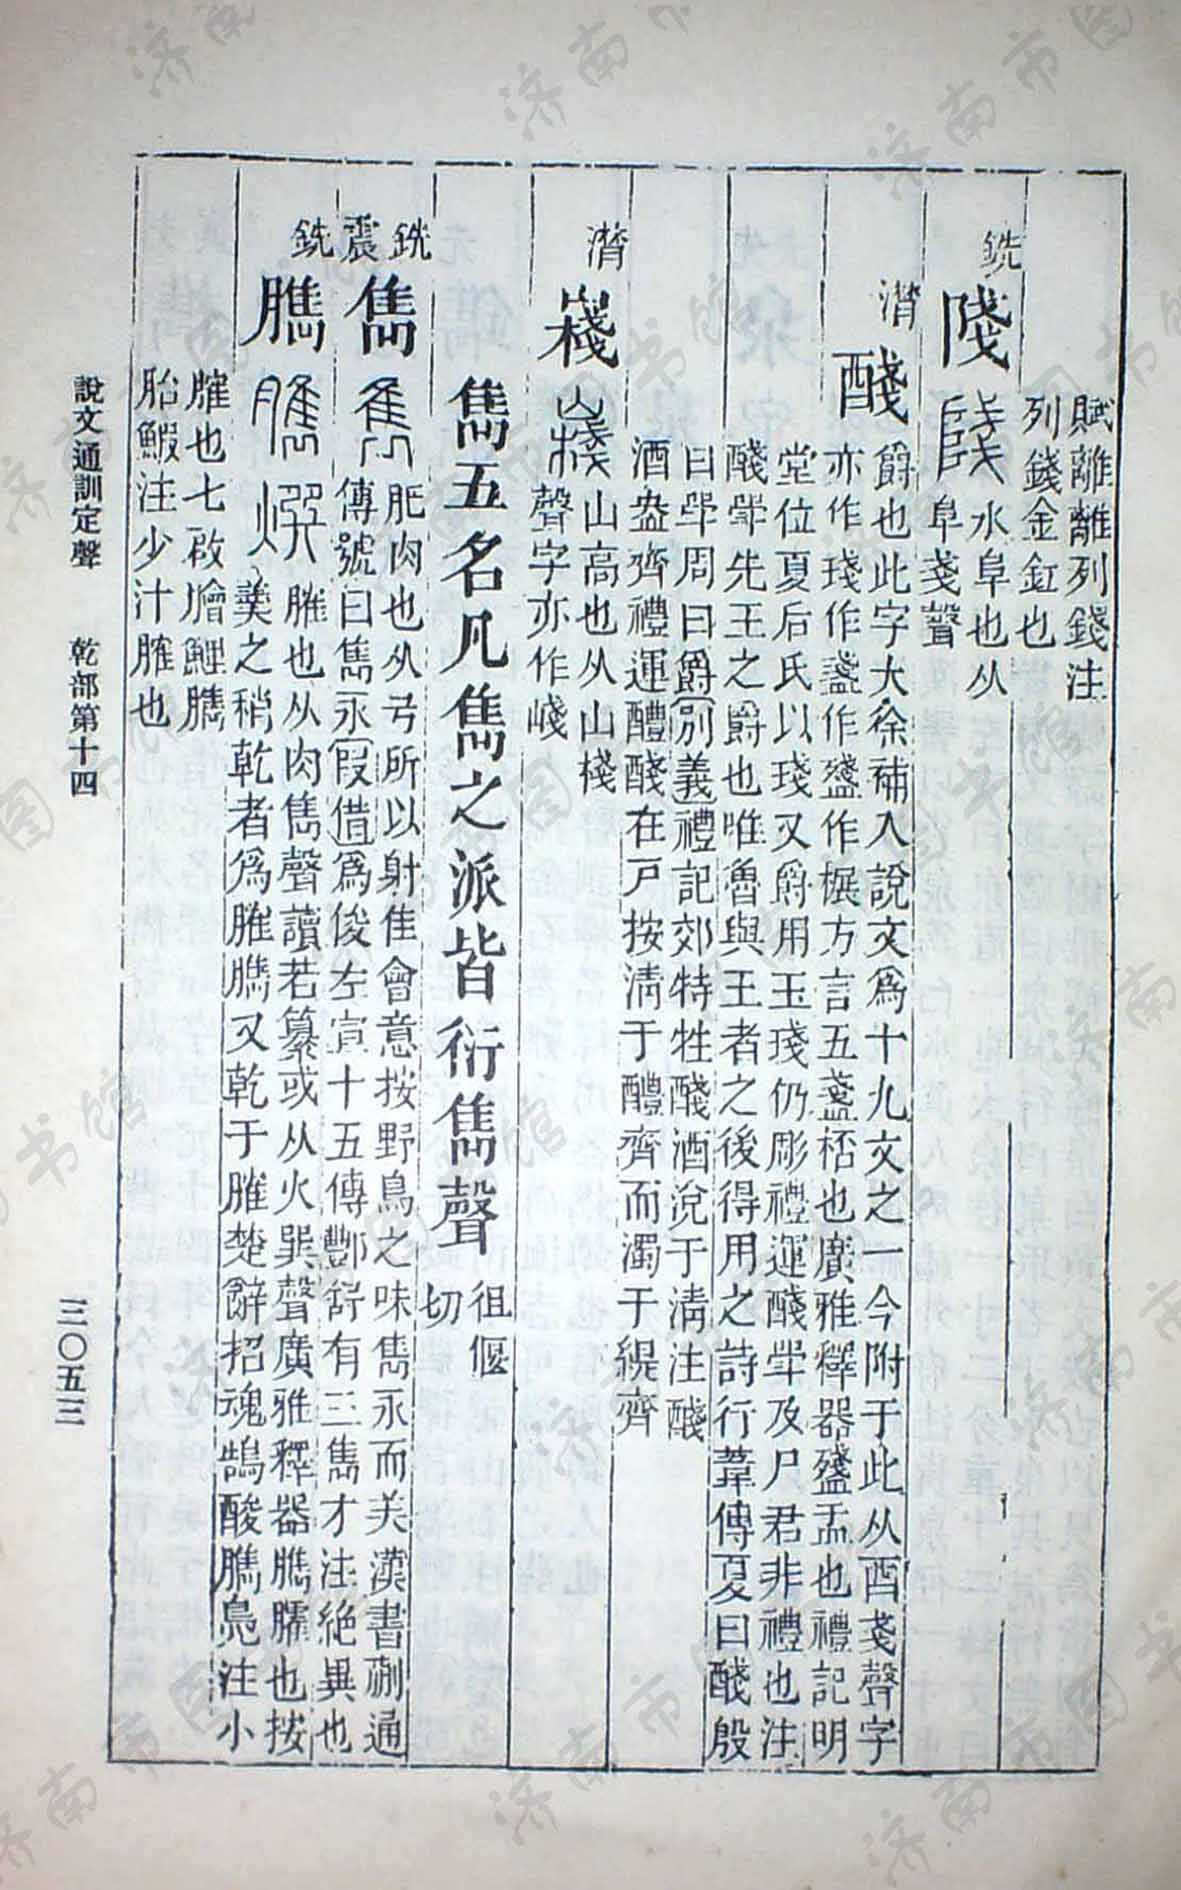 賦離離列錢注
列錢金釭也
銑
隌水阜也从
阜戔聲
潸
醆爵也此字大徐補入說文爲十九文之一今附于此从酉戔聲字
亦作琖作盞作盏作𣝓方言五盞桮也廣雅釋器盞盂也禮記明
堂位夏后氏以琖又爵用玉琖仍彫禮運醆斝及尸君非禮也注
醆斝先王之爵也唯魯與王者之後得用之詩行葦傳夏曰醆殷
曰斝周曰爵別義禮記郊特牲醆酒涗于淸注醆
酒盎齊禮運醴醆在戸按淸于醴齊而濁于緹齊
潸
嶘山高也从山棧
聲字亦作嵼
雋五名凡雋之派皆衍雋聲 徂偃切
銑 震
雋肥肉也从弓所以射隹會意按野鳥之味雋永而美漢書蒯通
傳號曰雋永叚借爲俊左宣十五傳酆舒有三雋才注絶異也
銑
臇 𤎱 臛也从肉雋聲讀若纂或从火巽聲廣雅釋器臇臛也按
羹之稍乾者爲臛臇又乾于臛楚辭招魂鵠酸臇鳧注小
臛也七啟膾鯉臇
胎鰕注少汁臛也
說文通訓定聲 乾部第十四 三〇五三
济南市图书馆